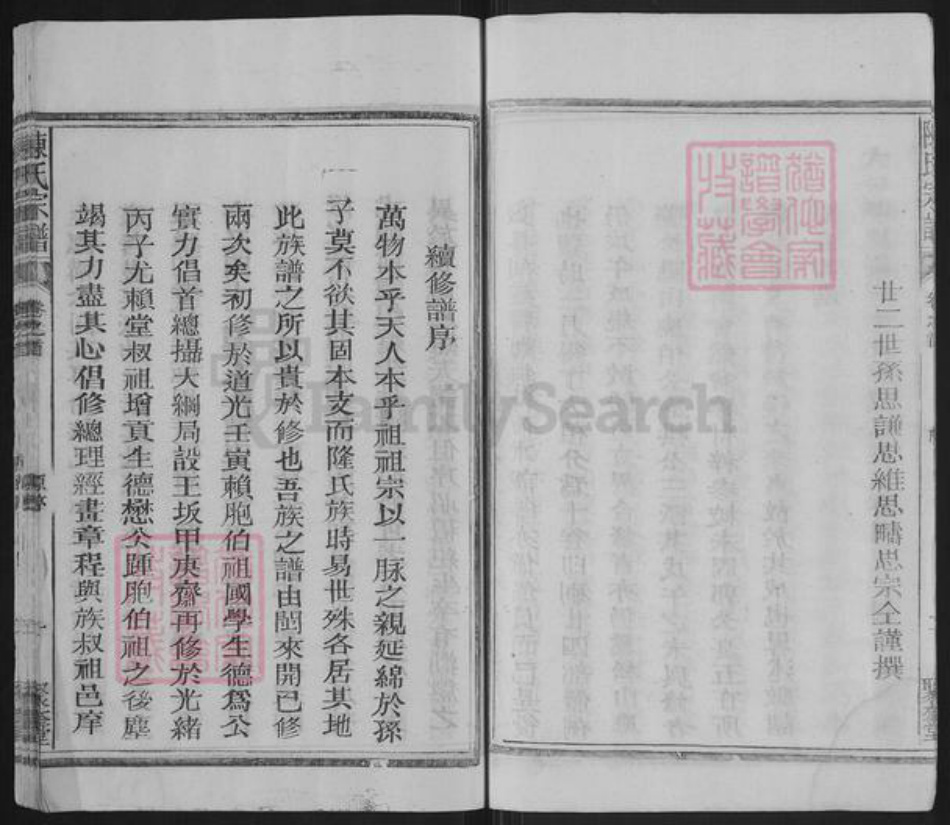 廿二世孫思謙思維思疇思宗仝謹撰
續修譜序
萬物本乎天人本乎祖祖宗以一脉之親延綿於孫
子莫不欲其固本支而隆氏族時易世殊各居其地
此族譜之所以貴於修也吾族之譜由閩來開已修
兩次矣初修於道光壬寅賴胞伯祖國學生德爲公
實力倡首總攝大綱局設王坂甲庚齋再修於光緒
丙子尤賴堂叔祖增貢生德懋公踵胞伯祖之後塵
竭其力盡其心倡修總理經畫章程與族叔祖邑庠
陳氏宗譜
卷之首
聚奎堂
FamilySearch